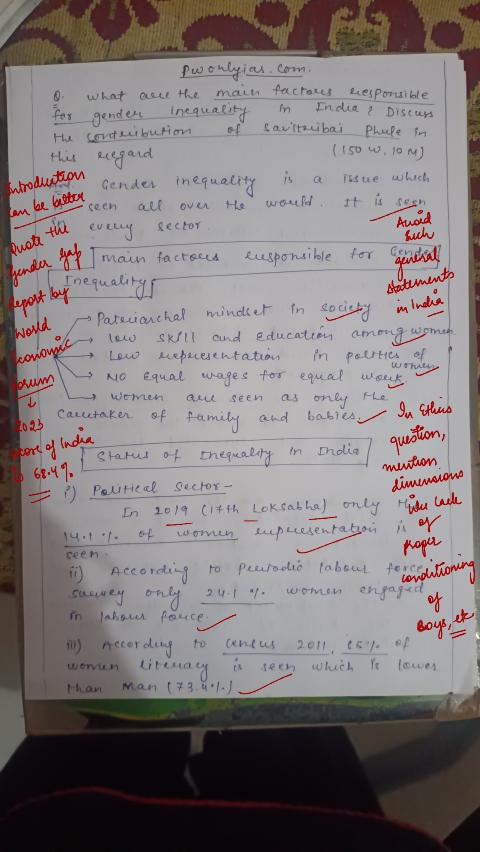 Pwonlyias.com.
Q. What are the main factors responsible
for gender inequality in India? Discuss
the contribution of Savitribai Phule in
this regard (150 W, 10 M)
Gender inequality is a issue which
seen all over the would. It is seen
in every sector.
main factors responsible for Gender
Inequality
→ Patriarchal mindset in society
→ low skill and education among women
→ Low representation in politics of
women
→ NO Equal wages for equal work
→ women are seen as only the
caretaker of family and babies.
Status of Inequality in India
i) Political Sector -
In 2019 (17th Loksabha) only
14.1% of women representation is
seen.
ii) According to Periodic labour force
survey only 24.1 % women engaged
in labour force.
iii) According to census 2011, 65% of
women literacy is seen which is lower
than Man (73.4%.)
Introduction
can be better
Quote the
Gender Gap
Report by
World
Economic
Forum
↓
2023
score of India
is 68.4%
Avoid
such
general
statements
in India
In Ethics
question,
mention
dimensions
like lack
of
proper
conditioning
of
Boys, etc